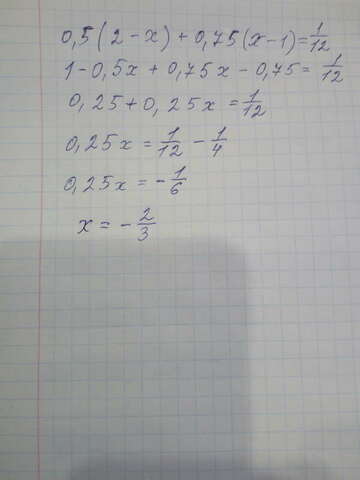 0,5(2-x)+0,75(x-1)=1/12
1-0,5x+0,75x-0,75=1/12
0,25+0,25x=1/12
0,25x=1/12-1/4
0,25x=-1/6
x=-2/3